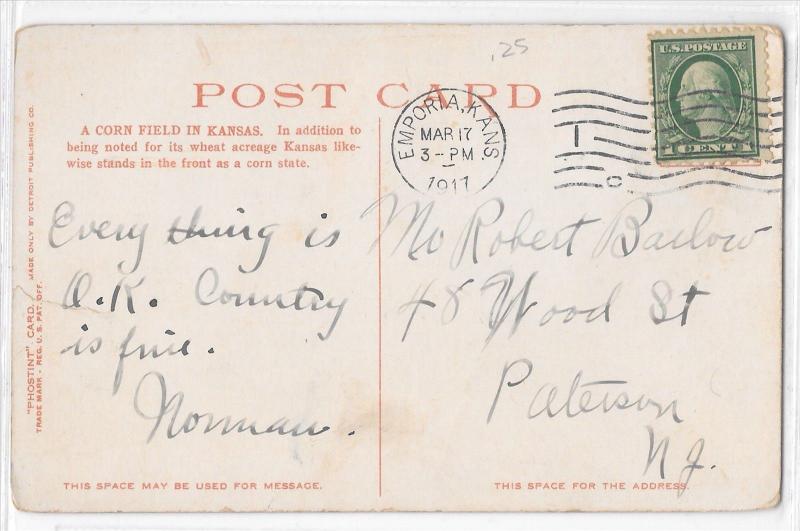 .25
POST CARD
U.S. POSTAGE
1 CENT 1
EMPORIA, KANS
MAR 17
3-PM
1917
A CORN FIELD IN KANSAS. In addition to
being noted for its wheat acreage Kansas like-
wise stands in the front as a corn state.
"PHOSTINT" CARD. MADE ONLY BY DETROIT PUBLISHING CO.
TRADE MARK - REG. U. S. PAT. OFF.
Every thing is
O.K. Country
is fine.
Norman.
Mr Robert Barlow
48 Wood St
Paterson
N J.
THIS SPACE MAY BE USED FOR MESSAGE.
THIS SPACE FOR THE ADDRESS.